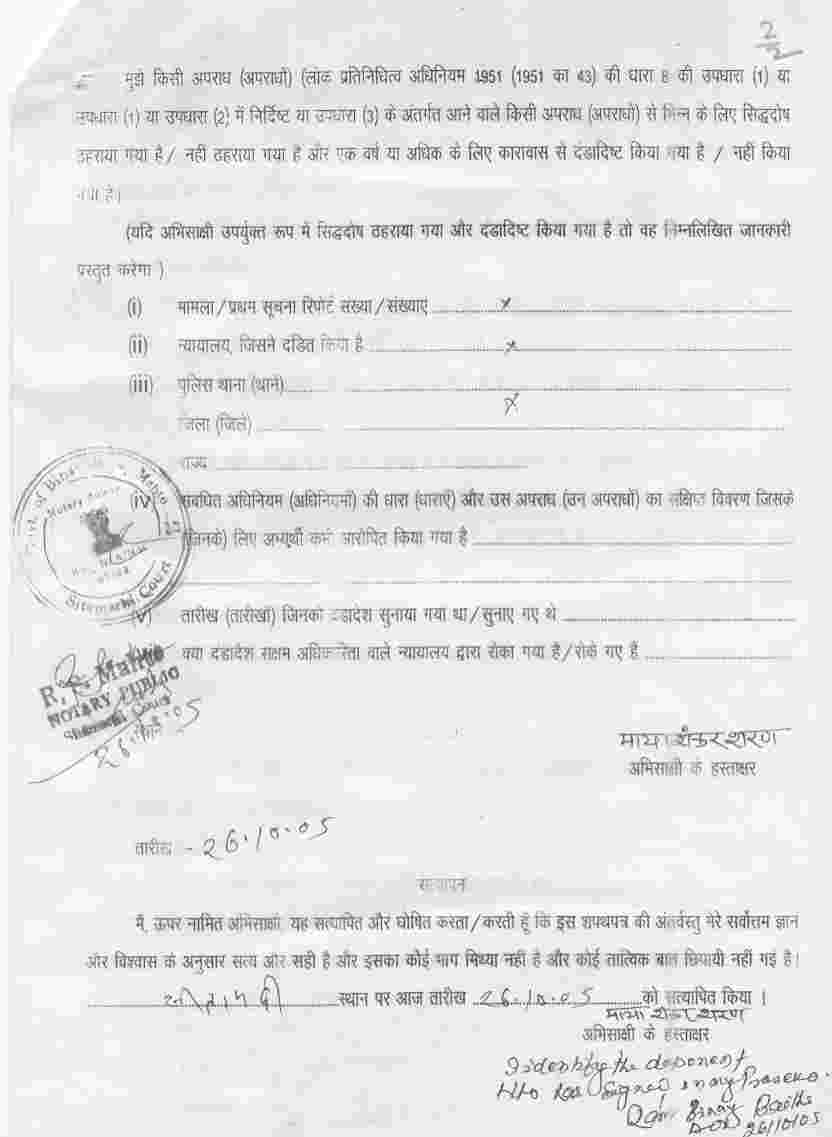 2/2
मुझे किसी अपराध (अपराधों) (लोक प्रतिनिधित्व अधिनियम 1951 (1951 का 43) की धारा 8 की उपधारा (1) या
उपधारा (1) या उपधारा (2) में निर्दिष्ट या उपधारा (3) के अंतर्गत आने वाले किसी अपराध (अपराधों) से भिन्न के लिए सिद्धदोष
ठहराया गया है / नहीं ठहराया गया है और एक वर्ष या अधिक के लिए कारावास से दंडादिष्ट किया गया है / नहीं किया
गया है।
(यदि अभिसाक्षी उपर्युक्त रूप में सिद्धदोष ठहराया गया और दंडादिष्ट किया गया है तो वह निम्नलिखित जानकारी
प्रस्तुत करेगा )
(i) मामला/प्रथम सूचना रिपोर्ट संख्या/संख्याएं x
(ii) न्यायालय, जिसने दंडित किया है x
(iii) पुलिस थाना (थाने) x
जिला (जिले)
राज्य
(iv) संबंधित अधिनियम (अधिनियमों) की धारा (धाराएं) और उस अपराध (उन अपराधों) का संक्षिप्त विवरण जिसके
(जिनके) लिए अभ्यर्थी कभी आरोपित किया गया है
(v) तारीख (तारीखों) जिनको दंडादेश सुनाया गया था/सुनाए गए थे
क्या दंडादेश सक्षम अधिकारिता वाले न्यायालय द्वारा रोका गया है/रोके गए हैं
Notary
Sitamarhi Court
NOTARY PUBLIC
Court
माया शंकर शरण
अभिसाक्षी के हस्ताक्षर
तारीख - 26.10.05
सत्यापन
मैं, ऊपर नामित अभिसाक्षी, यह सत्यापित और घोषित करता/करती हूँ कि इस शपथपत्र की अंतर्वस्तु मेरे सर्वोत्तम ज्ञान
और विश्वास के अनुसार सत्य और सही है और इसका कोई भाग मिथ्या नहीं है और कोई तात्विक बात छिपायी नहीं गई है।
स्थान पर आज तारीख 26.10.05 को सत्यापित किया ।
माया शंकर शरण
अभिसाक्षी के हस्ताक्षर
I identify the deponent
who has signed
26/10/05